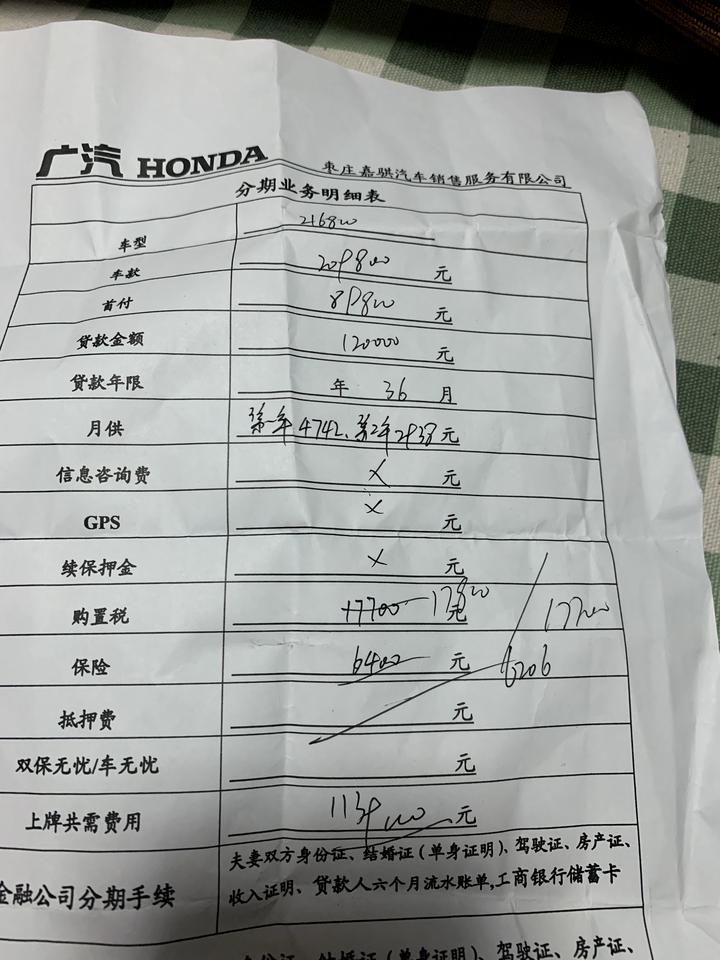 广汽 HONDA
枣庄嘉骐汽车销售服务有限公司
分期业务明细表
车型 216800
车款 209800 元
首付 89800 元
贷款金额 120000 元
贷款年限 年 36 月
月供 第一年4742、第2年2938元
信息咨询费 × 元
GPS × 元
续保押金 × 元
购置税 17700 17800 元 17200
保险 6400 元 6206
抵押费 元
双保无忧/车无忧 元
上牌共需费用 113900 元
金融公司分期手续 夫妻双方身份证、结婚证(单身证明)、驾驶证、房产证、
收入证明、贷款人六个月流水账单,工商银行储蓄卡
身份证、结婚证(单身证明)、驾驶证、房产证、